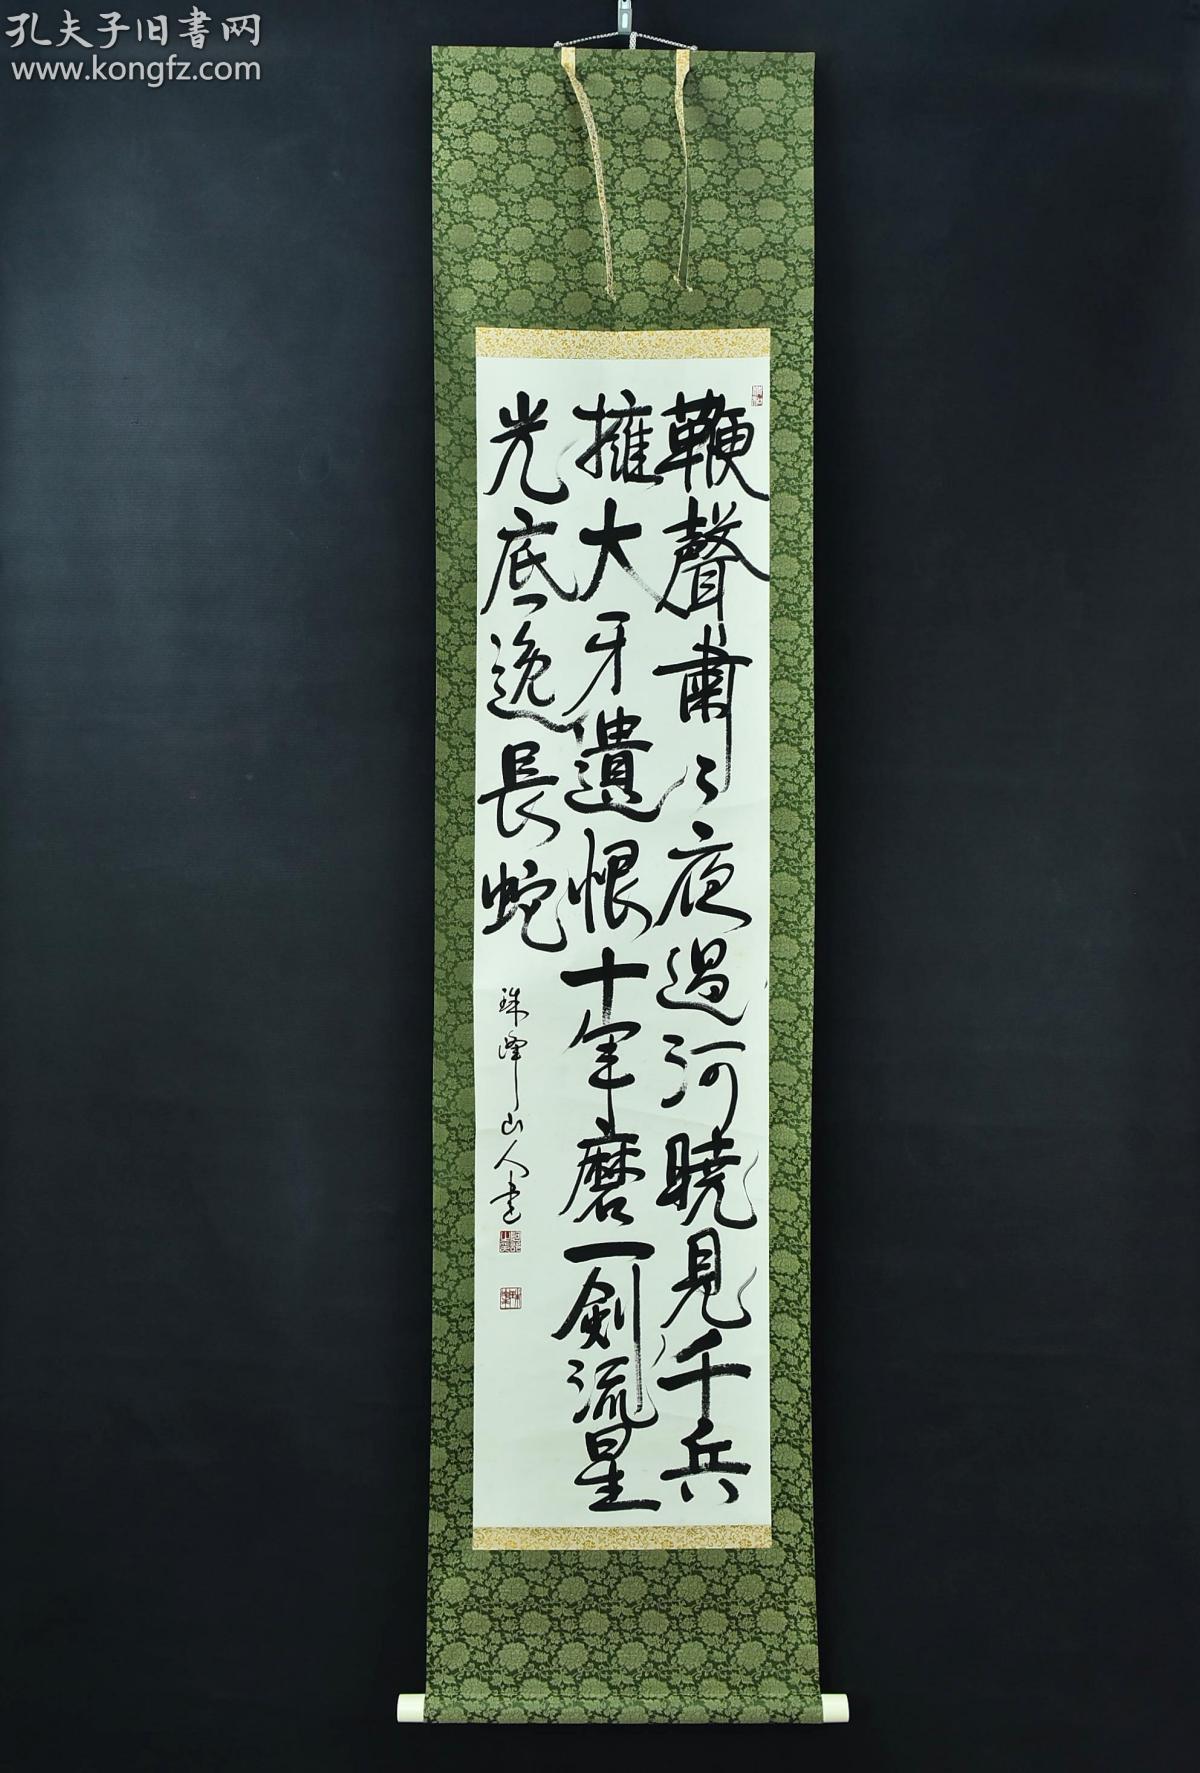 孔夫子旧書网
www.kongfz.com
鞭聲肅々夜過河曉見千兵
擁大牙遺恨十年磨一剣流星
光底逸長蛇
珠峰山人書